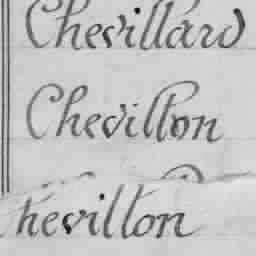 Chevillard
Chevillon
hevillon